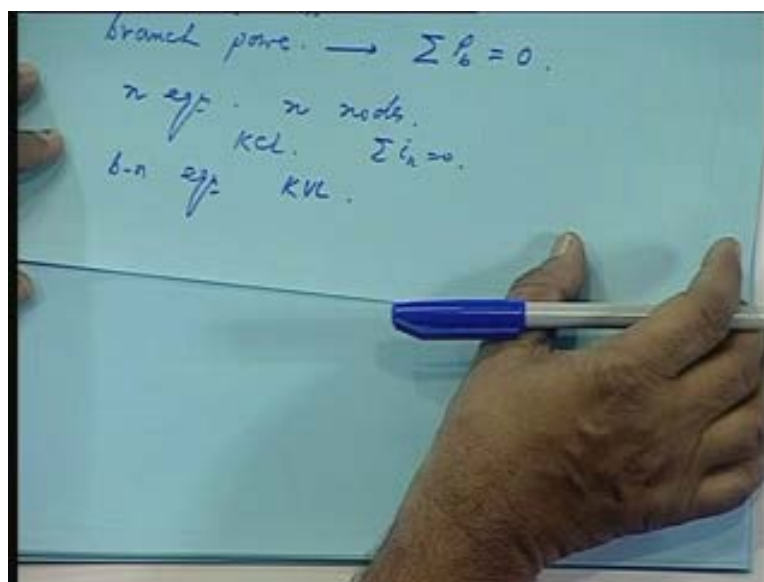 branch powe. → Σ P_b = 0.
n eqs. n nods.
KCL. Σ i_n = 0.
b-n eqs KVL.